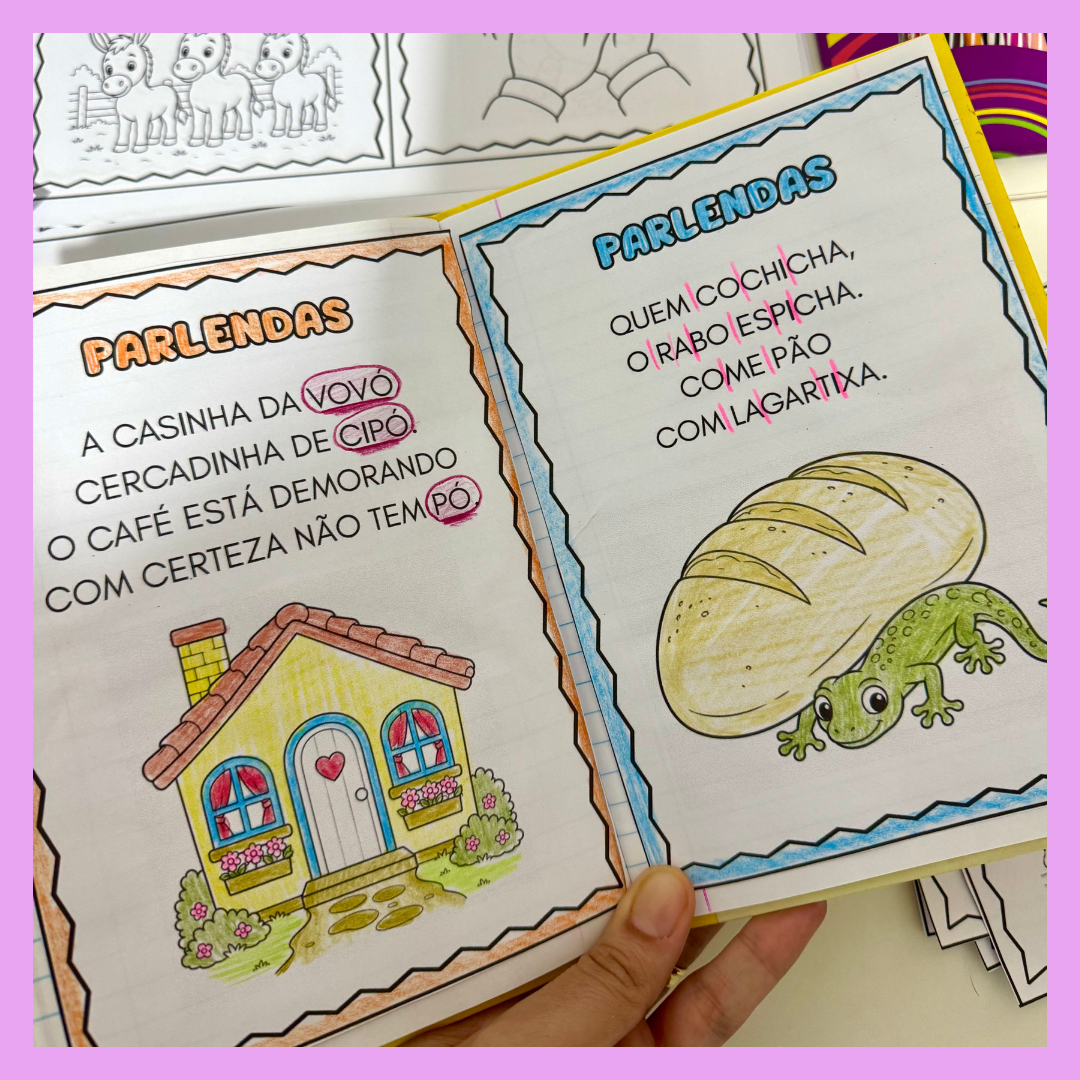 PARLENDAS
A CASINHA DA VOVÓ
CERCADINHA DE CIPÓ.
O CAFÉ ESTÁ DEMORANDO
COM CERTEZA NÃO TEM PÓ.
PARLENDAS
QUEM COCHICHA,
O RABO ESPICHA.
COME PÃO
COM LAGARTIXA.